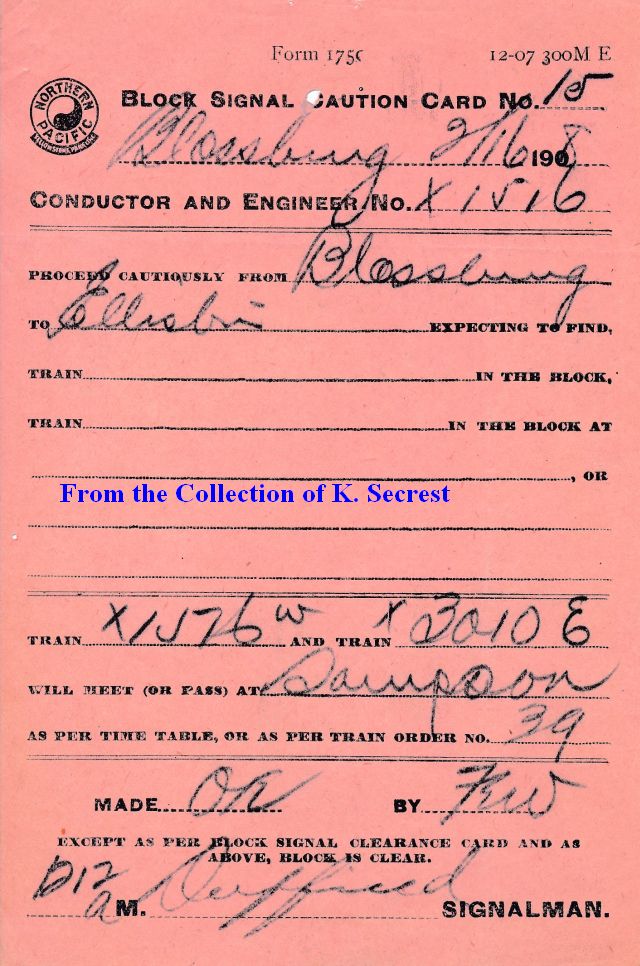 Form 1750 12-07 300M E
NORTHERN PACIFIC
BLOCK SIGNAL CAUTION CARD NO. 15
Blossburg 2/16 1908
CONDUCTOR AND ENGINEER NO. X1516
PROCEED CAUTIOUSLY FROM Blossburg
TO EXPECTING TO FIND,
TRAIN IN THE BLOCK,
TRAIN IN THE BLOCK AT
, OR
From the Collection of K. Secrest
TRAIN X1576 W AND TRAIN X3010 E
WILL MEET (OR PASS) AT Sampson
AS PER TIME TABLE, OR AS PER TRAIN ORDER NO. 39
MADE OK BY
EXCEPT AS PER BLOCK SIGNAL CLEARANCE CARD AND AS
ABOVE, BLOCK IS CLEAR.
1212
A M. SIGNALMAN.